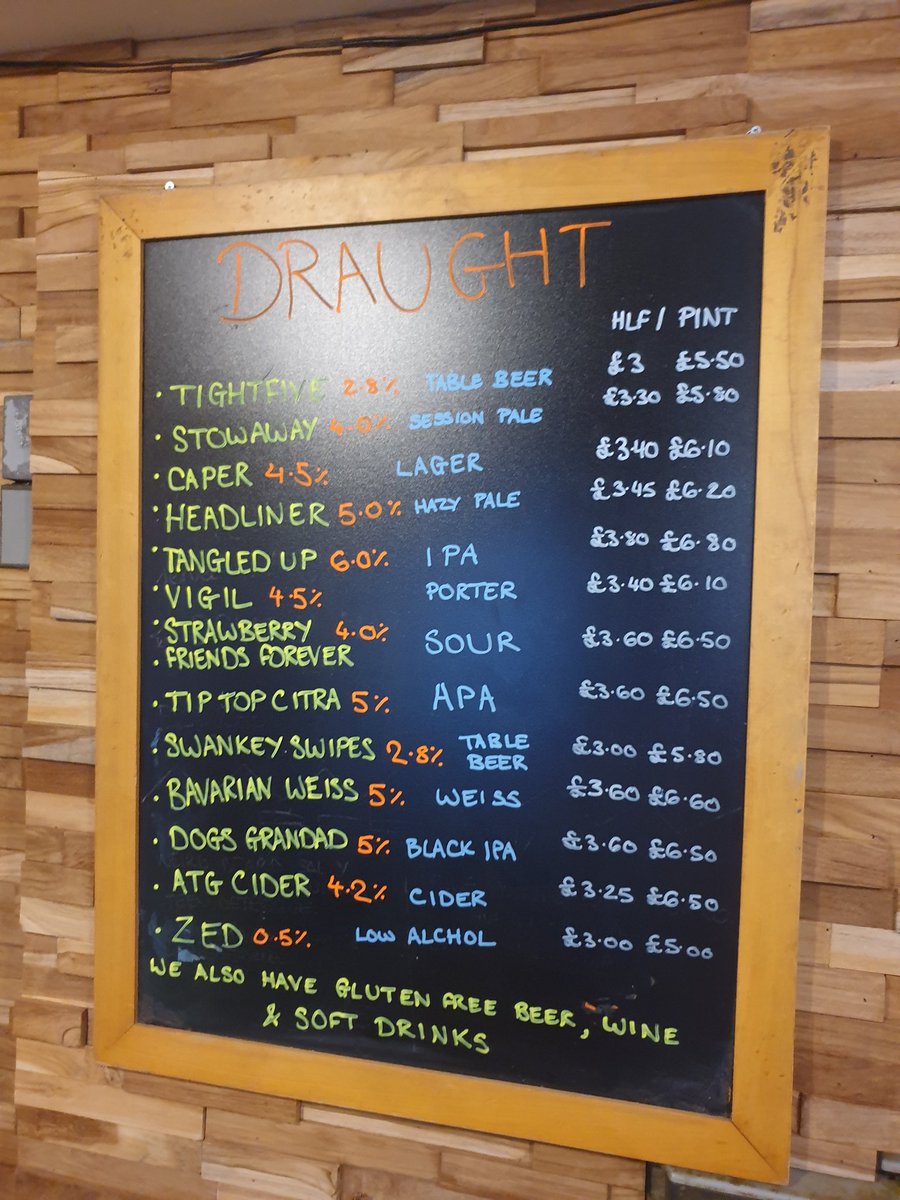 DRAUGHT
HLF / PINT
• TIGHTFIVE 2.8% TABLE BEER £3 £5.50
• STOWAWAY 4.0% SESSION PALE £3.30 £5.80
• CAPER 4.5% LAGER £3.40 £6.10
• HEADLINER 5.0% HAZY PALE £3.45 £6.20
• TANGLED UP 6.0% IPA £3.80 £6.80
• VIGIL 4.5% PORTER £3.40 £6.10
• STRAWBERRY 4.0% SOUR £3.60 £6.50
• FRIENDS FOREVER
• TIP TOP CITRA 5% APA £3.60 £6.50
• SWANKEY SWIPES 2.8% TABLE BEER £3.00 £5.80
• BAVARIAN WEISS 5% WEISS £3.60 £6.60
• DOGS GRANDAD 5% BLACK IPA £3.60 £6.50
• ATG CIDER 4.2% CIDER £3.25 £6.50
• ZED 0.5% LOW ALCHOL £3.00 £5.00
WE ALSO HAVE GLUTEN FREE BEER, WINE
& SOFT DRINKS